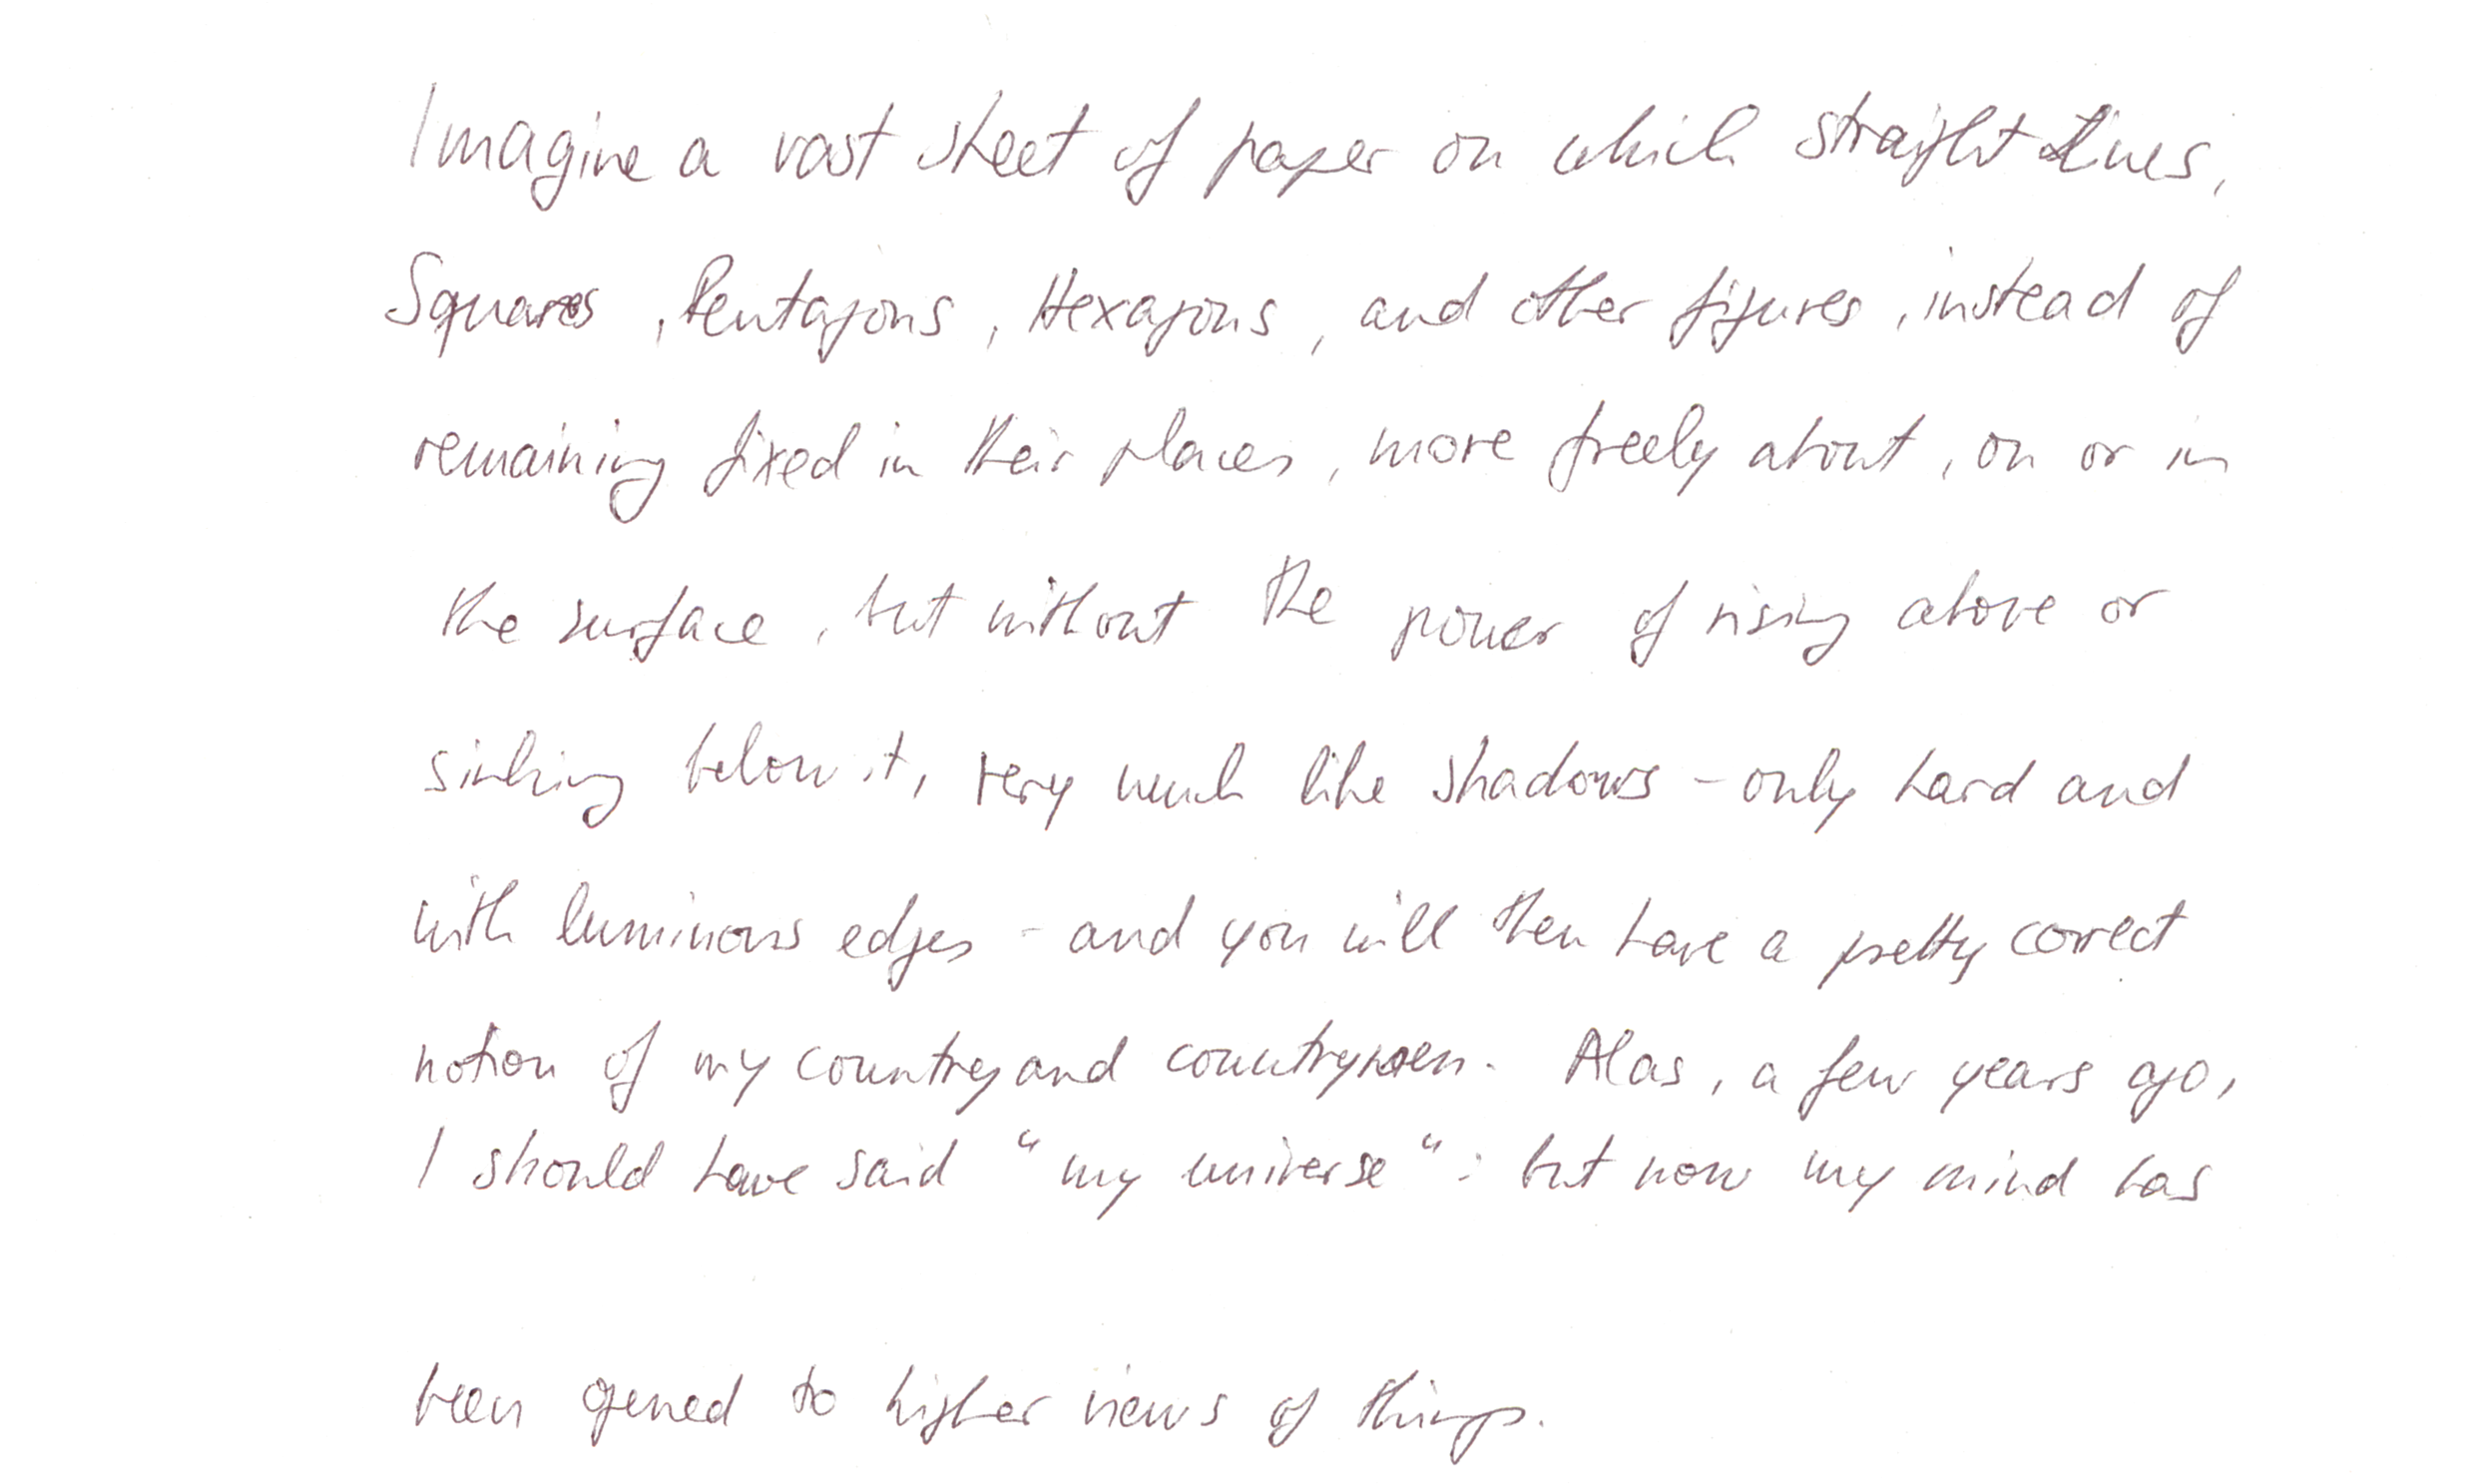 Imagine a vast sheet of paper on which straight Lines,
Squares, Pentagons, Hexagons, and other figures, instead of
remaining fixed in their places, move freely about, on or in
the surface, but without the power of rising above or
sinking below it, very much like shadows - only hard and
with luminous edges - and you will then have a pretty correct
notion of my country and countrymen. Alas, a few years ago,
I should have said “my universe“: but now my mind has
been opened to higher views of things.